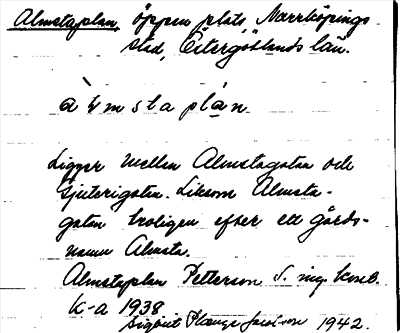 Almstaplan, öppen plats, Norrköpings
stad, Östergötlands län.
àl̀mstaplán
Ligger mellan Almstagatan och
Gjuterigatan. Liksom Almsta-
gatan troligen efter ett gårds-
namn Almsta.
Almstaplan Petterson S. ing. komb.
K-a 1938.
Sigbrit Plænge Jacobson 1942.